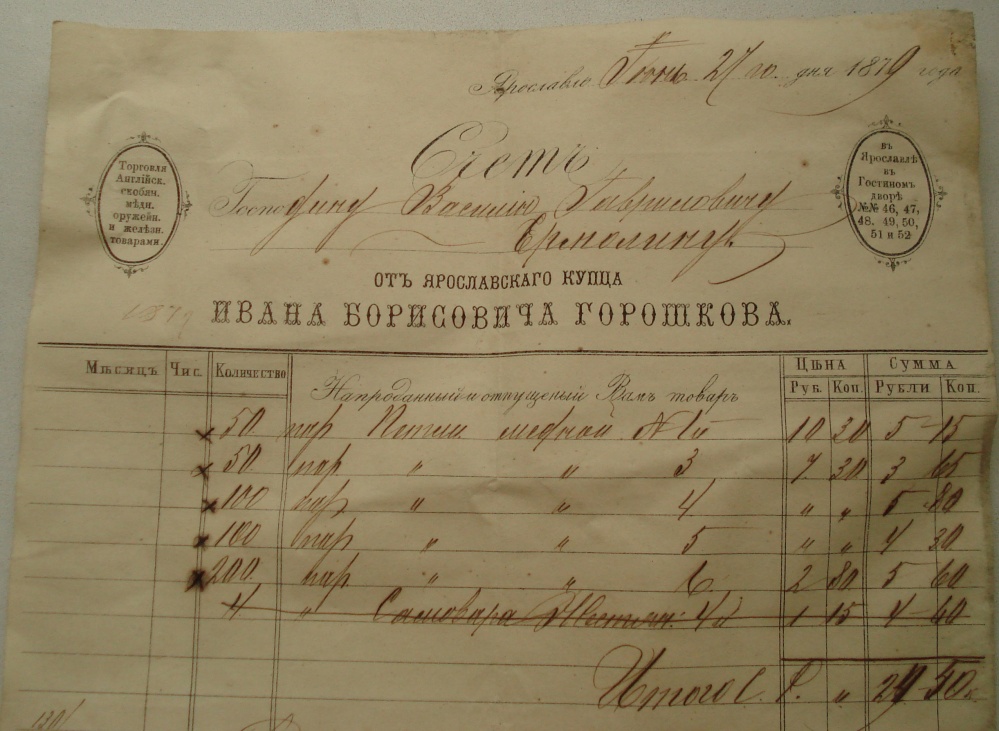 Ярославль Іюнь 27 го. дня 1879 года
Счетъ
Торговля
Англійск.
скобяч.
мѣдн.
оружейн.
и желѣзн.
товарами.
въ
Ярославлѣ
въ
Гостиномъ
дворѣ
№№ 46, 47,
48. 49, 50,
51 и 52
Господину Василію Гавриловичу
Ермолину
ОТЪ ЯРОСЛАВСКАГО КУПЦА
1879
ИВАНА БОРИСОВИЧА ГОРОШКОВА.
Мѣсяцъ Чис. Количество Напроданный и отпущеный Вамъ товаръ ЦѢНА СУММА
Руб. Коп. Рубли Коп.
х 50. пар Петли медной №1й 10 30 5 15
х 50 пар " " 3 7 30 3 65
х 100 пар " " 4 " " 5 80
х 100 пар " " 5 " " 4 30
х 200. пар " " 6 2 80 5 60
4 " Самовара 1 15 4 60
Итого С. Р. " 50